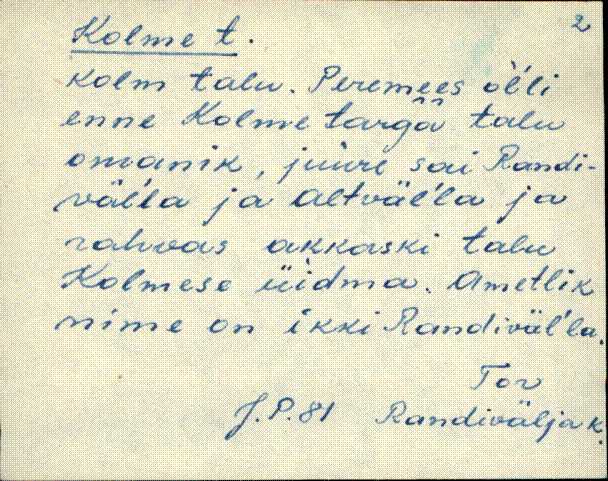 2
Kolme t.
kolm talu. Peremees ol'li
enne Kolme targâ talu
omanik, juure sai Randi-
väl'la ja Altväl'la ja
rahvas akkaski talu
Kolmese üidma. Ametlik
nime on ikki Randiväl'la.
Tor
J.P.81 Randivälja k.